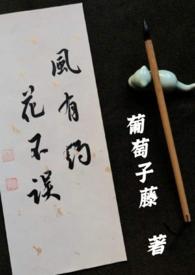 風有約
花不误
葡萄子藤 著